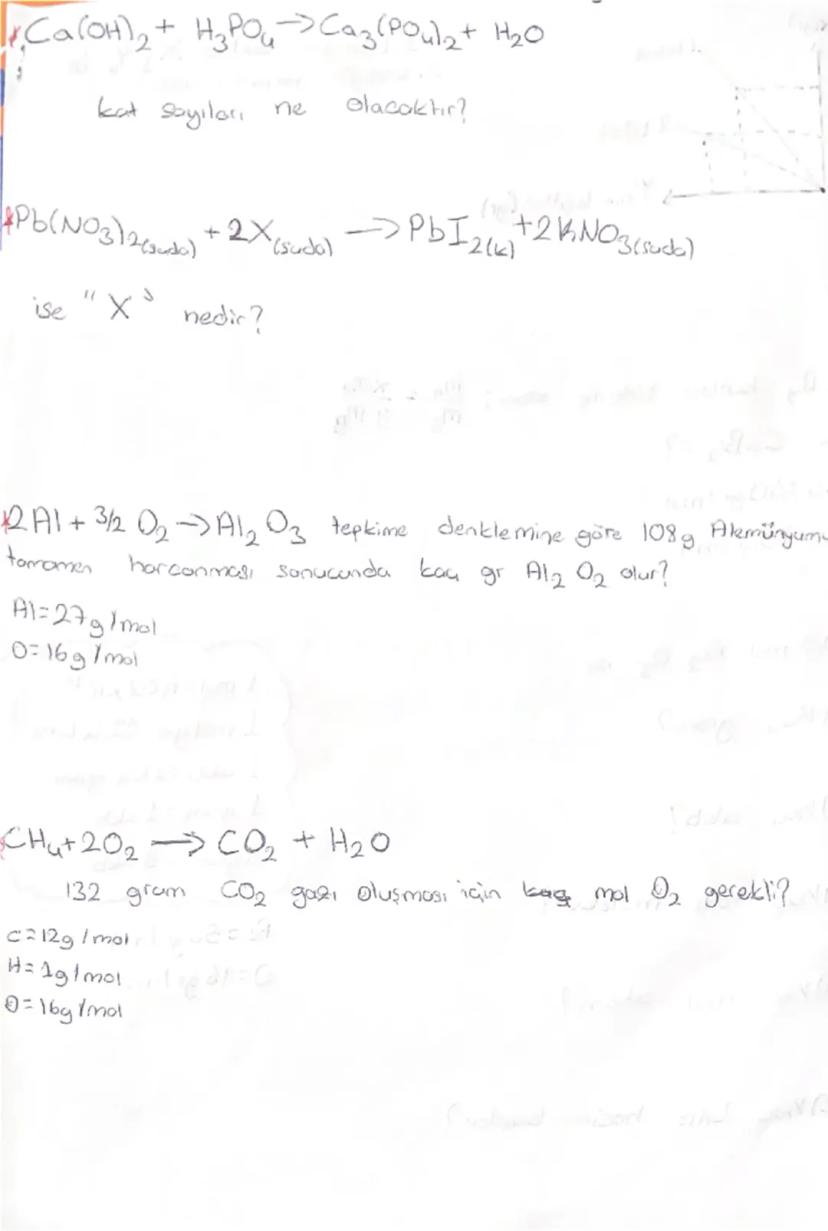 Ca(OH)₂ + H₃PO₄ → Ca₃(PO₄)₂ + H₂O
kat sayıları ne olacaktır?
Pb(NO₃)₂(suda) + 2X(suda) → PbI₂(k) + 2KNO₃(suda)
ise "X" nedir?
2Al + 3/2 O₂ → Al₂O₃ tepkime denklemine göre 108g Alemünyum
tamamen harcanması sonucunda kaç gr Al₂O₂ olur?
Al=27g/mol
O=16g/mol
CH₄+2O₂ → CO₂ + H₂O
132 gram CO₂ gazı oluşması için kaç mol O₂ gerekli?
C=12g/mol
H=1g/mol
O=16g/mol